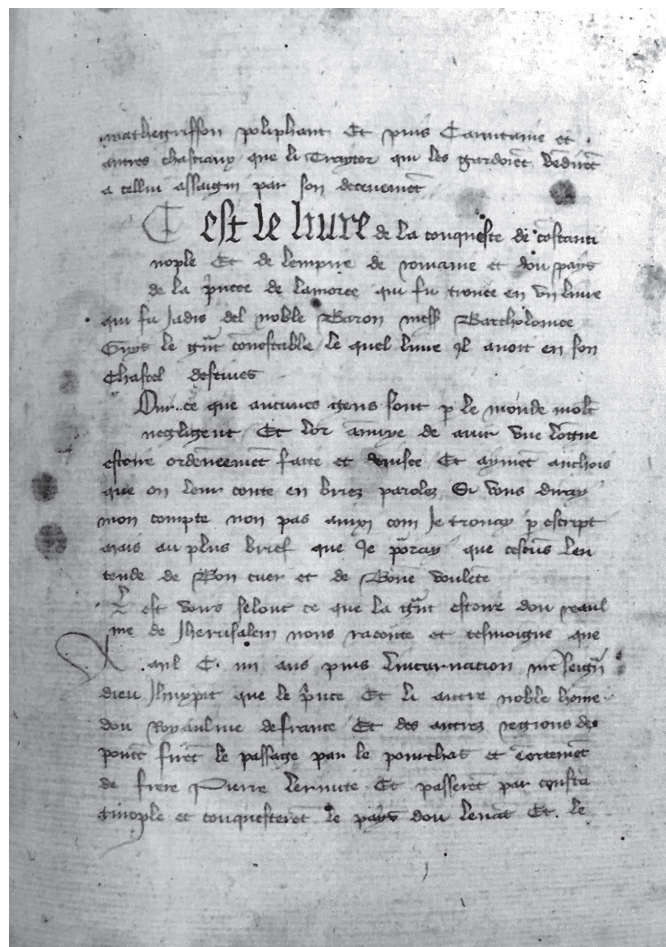 mathegriffon poliphant Et puis Carintaine et
autres chastiaux que li Traytor qui les gardoiēt vēdirēt
a cellui assaigni par son decevemēt
C'est le livre de la conqueste de cōstanti
nople Et de lempire de romanie et dou pays
de la p̄ncee de lamoree qui fu trouve en vn livre
qui fu Jadis del noble Baron mess̄ Bartholomee
Guys le gn̄t conostable le quel livre Jl avoit en son
Chastel destives
Pour ce que aucunes gens sont p le monde molt
negligent Et lor anuye de avir vne longue
estoire ordeneemēt faite et Et aymēt anchois
que on leur conte en briez parolez Si vous diray
mon compte non pas ainxi com Je trouvay p escript
mais au plus brief que Je pōray que cescūs len
tende de Bon cuer et de Bōne voulēte
est voirs selont ce que la gn̄t estoire dou reaul
me de Jherusalem nous raconte et tesmoigne que
A anl C. iiii ans puis Lincarnation nr̄e seignr̄
dieu Jhūxpit que le p̄nce Et li autre noble home
dou Royaulme de france Et des autrez regions de
ponēt firēt le passage par le pourchas et
de frere Pierre Lermite Et passerēt par consta
tinople et conquesterēt le pays dou levāt Et. le